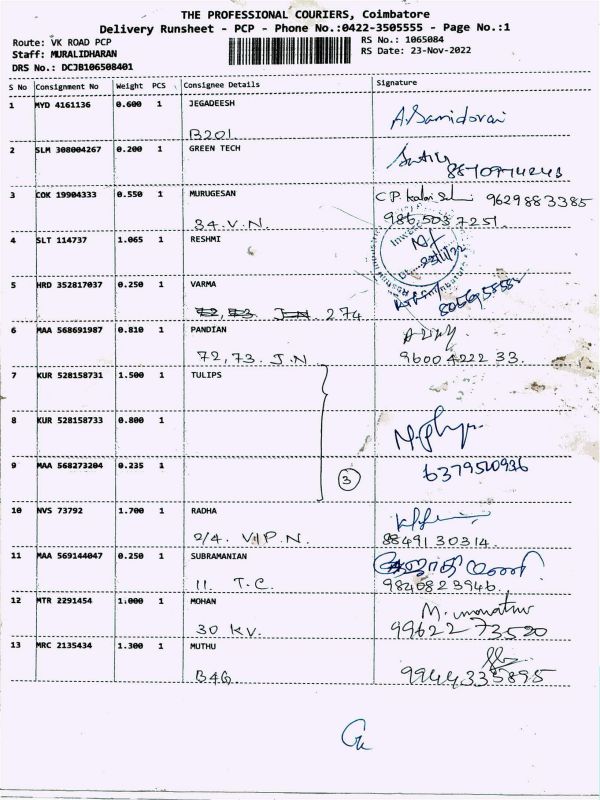 THE PROFESSIONAL COURIERS, Coimbatore
Delivery Runsheet - PCP - Phone No.:0422-3505555 - Page No.:1
Route: VK ROAD PCP
RS No.: 1065084
Staff: MURALIDHARAN
RS Date: 23-Nov-2022
DRS No.: DCJB106508401
S No Consignment No Weight PCS Consignee Details Signature
1 MYD 4161136 0.600 1 JEGADEESH
A. Samidorai
B201
2 SLM 308004267 0.200 1 GREEN TECH
3 COK 19904333 0.550 1 MURUGESAN
9629883385
34.V.N. 986 503 7251
4 SLT 114737 1.065 1 RESHMI
23/11/22
5 HRD 352817037 0.250 1 VARMA
72, 73 J.N 274
6 MAA 568691987 0.810 1 PANDIAN
72, 73. J.N 96004222 33.
7 KUR 528158731 1.500 1 TULIPS
8 KUR 528158733 0.800 1
9 MAA 568273204 0.235 1
6379510936
3
10 NVS 73792 1.700 1 RADHA
2/4. V.I.P.N. 88491 30314.
11 MAA 569144047 0.250 1 SUBRAMANIAN
11. T.C. 9846823946.
12 MTR 2291454 1.000 1 MOHAN
30 KV. 99622 73520
13 MRC 2135434 1.300 1 MUTHU
B46 9944335895